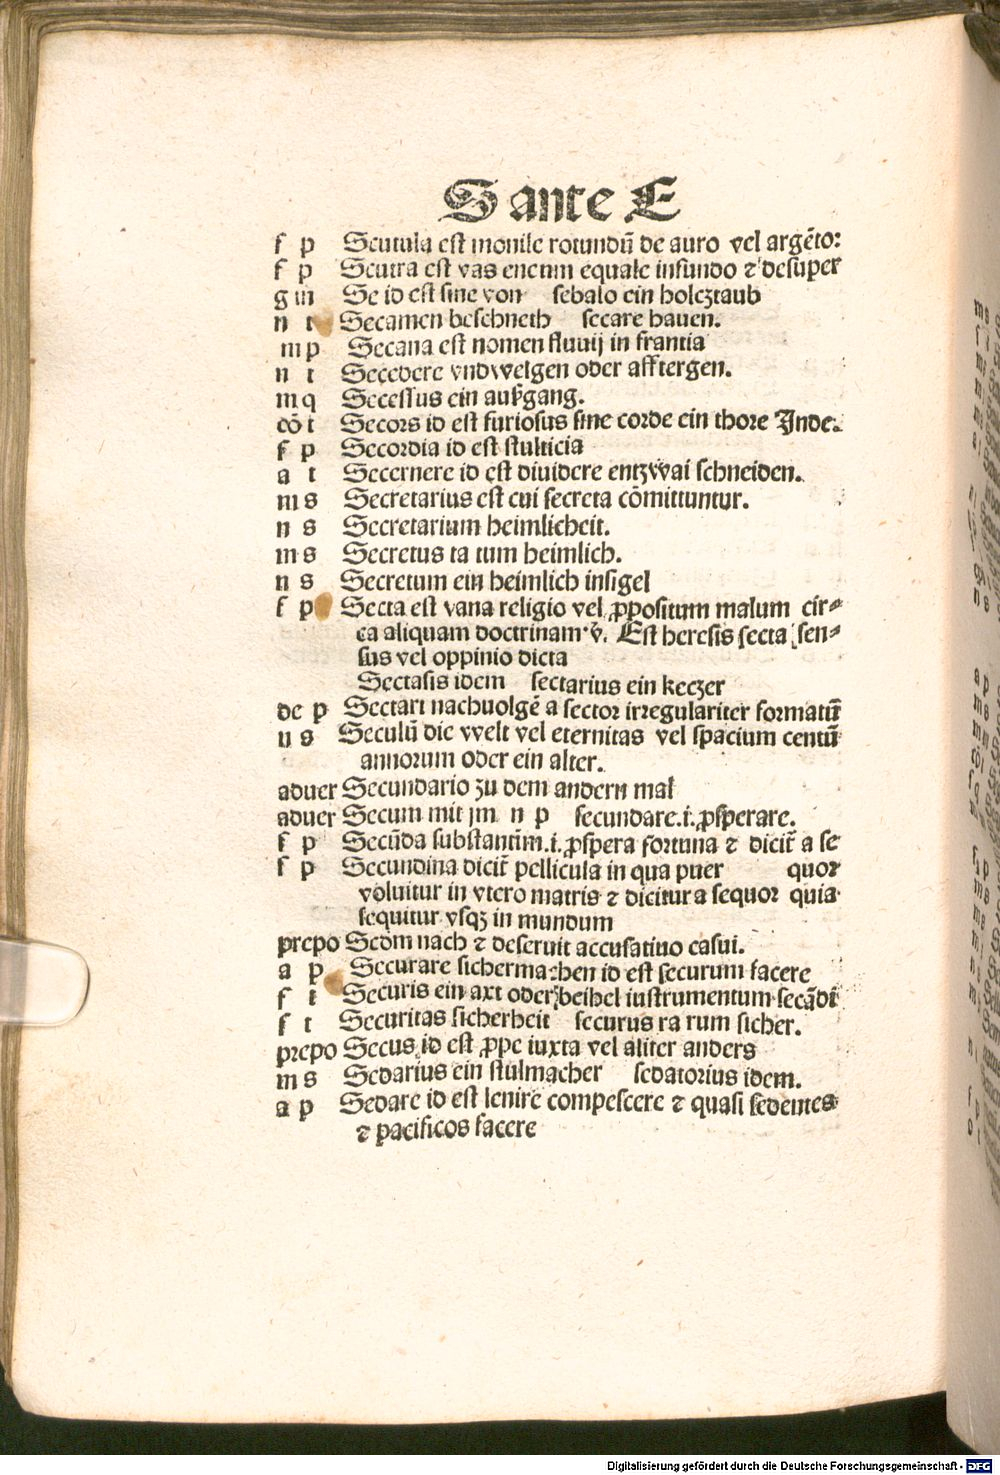 S ante E
f p Scutula est monile rotundū de auro vel argēto:
f p Scutra est vas eneum equale infundo ⁊ desuper
g m Se id est sine von sebalo ein holcztaub
n t Secamen beschneth secare hauen.
m p Secana est nomen fluuij in frantia
n t Secedere vndwelgen oder afftergen.
m q Secessus ein außgang.
cō t Secors id est furiosus sine corde ein thore Inde.
f p Secordia id est stulticia
a t Secernere id est diuidere entzwai schneiden.
m s Secretarius est cui secreta cōmittuntur.
n s Secretarium heimlicheit.
m s Secretus ta tum heimlich.
n s Secretum ein heimlich insigel
f p Secta est vana religio vel ꝓpositum malum cir⸗
ca aliquam doctrinam. v̄. Est heresis secta sen⸗
sus vel oppinio dicta
Sectasis idem sectarius ein keczer
de p Sectari nachuolgē a sector irregulariter formatū
n s Seculū die welt vel eternitas vel spacium centū
annorum oder ein alter.
aduer Secundario zu dem andern mal
aduer Secum mit jm n p secundare .i. ꝓsperare.
f p Secūda substantim̄ .i. ꝓspera fortuna ⁊ dicit̄ a se
f p Secundina dicit̄ pellicula in qua puer quor
voluitur in vtero matris ⁊ dicitur a sequor quia
sequitur vsqꝫ in mundum
prepo Secdm nach ⁊ deseruit accusatiuo casui.
a p Securare sichermachen id est securum facere
f t Securis ein axt oder beihel instrumentum secādi
f t Securitas sicherheit securus ra rum sicher.
prepo Secus id est ꝓpe iuxta vel aliter anders
m s Sedarius ein stulmacher sedatorius idem.
a p Sedare id est lenire compescere ⁊ quasi sedentes
⁊ pacificos facere
Digitalisierung gefördert durch die Deutsche Forschungsgemeinschaft - DFG